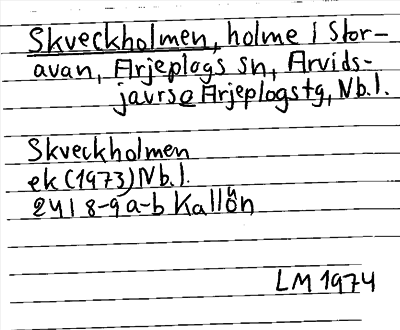 Skveckholmen, holme i Stor-
avan, Arjeplogs sn, Arvids-
jaurs o Arjeplogs tg, Nb.l.
Skveckholmen
ek (1973) Nb.l.
24I 8-9 a-b Kallön
LM 1974